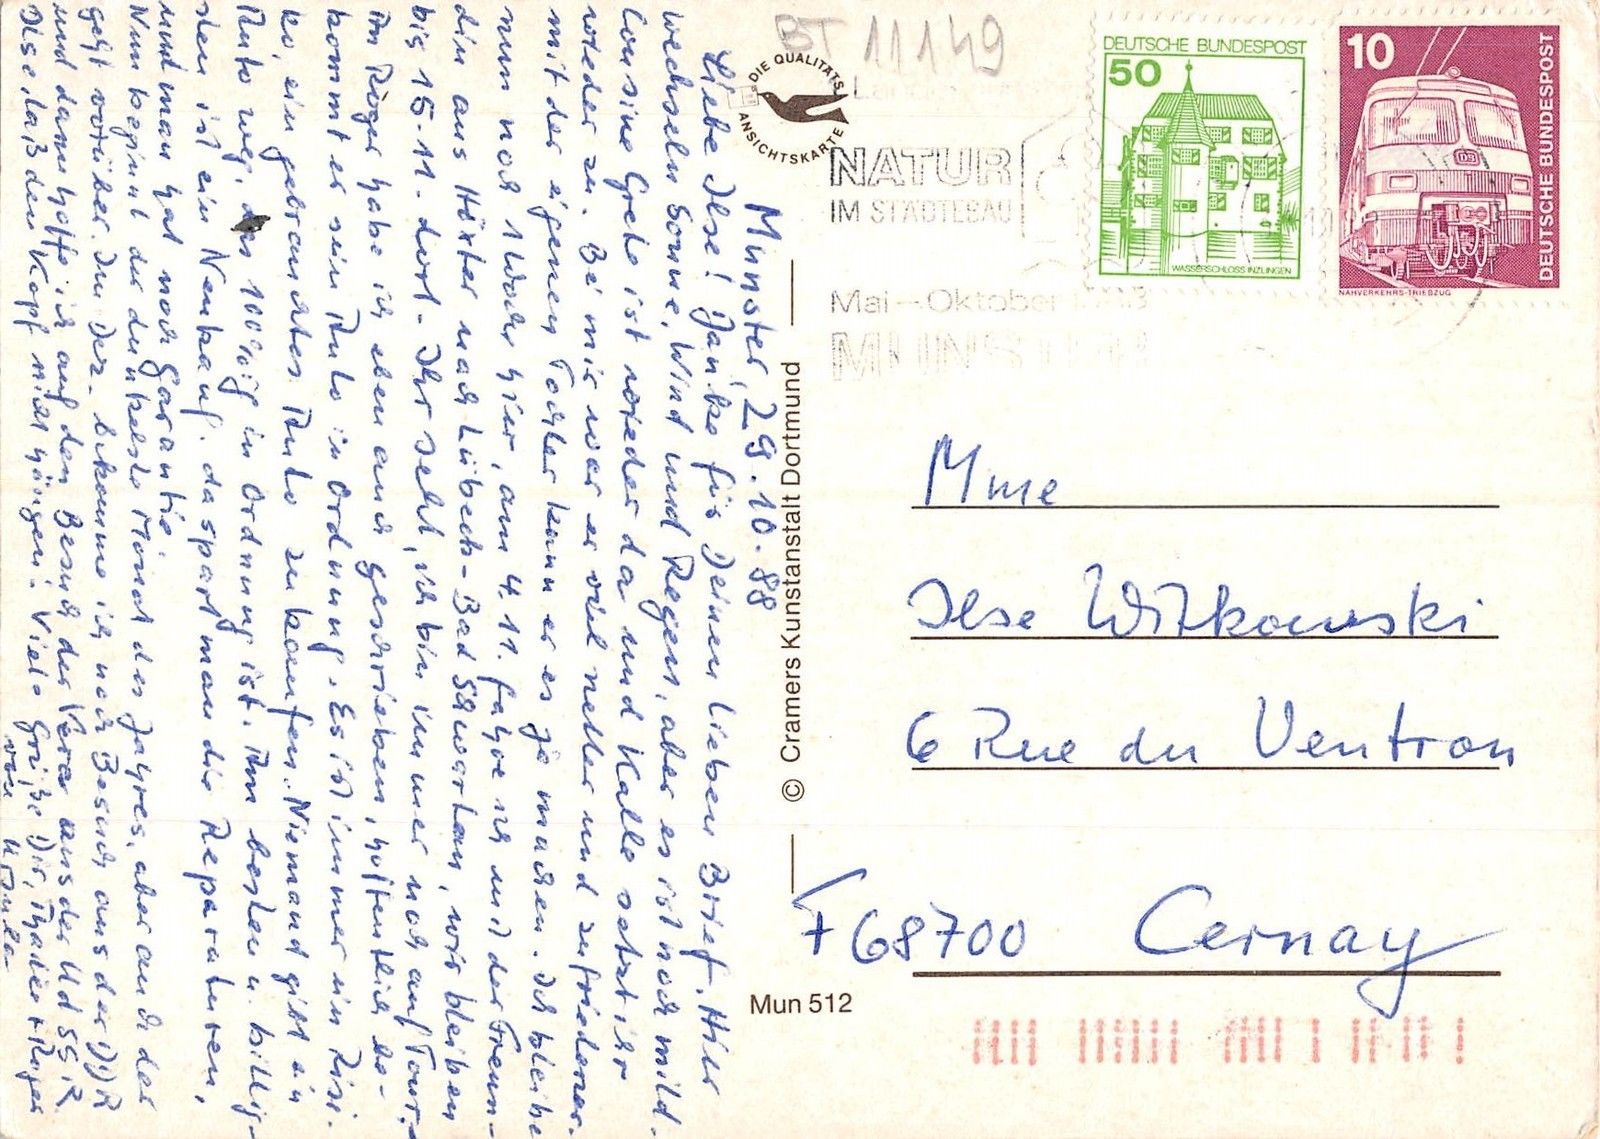 Münster, 29.10.88
Liebe Ilse! Danke für Deinen lieben Brief. Hier
wechseln Sonne, Wind und Regen, aber es ist noch mild.
Cousine Grete ist wieder da und Kalle setzt ihr
wieder zu. Bei mir war er viel netter und zufriedener.
mit der eigenen Tochter kann er es ja machen. Ich bleibe
nun noch 1 Woche hier, am 4.11. fahre ich mit der Freun-
din aus Höxter nach Lübeck-Bad Schwartau, wir bleiben
bis 15.11. dort. Ihr seht, ich bin immer noch auf Tour.
An Roger habe ich eben auch geschrieben, hoffentlich be-
kommt er sein Auto in Ordnung. Es ist immer ein Risi-
ko, ein gebrauchtes Auto zu kaufen. Niemand gibt ein
Auto weg, das 100%ig in Ordnung ist. Am besten u. billig-
sten ist ein Neukauf. da spart man die Reparaturen,
und man hat noch Garantie.
Nun beginnt der dunkelste Monat des Jahres, aber auch der
geht vorüber. Im Dez. bekomme ich noch Besuch aus der DDR
und dann hoffe ich auf den Besuch der Vera aus der UdSSR.
Ilse, laß den Kopf nicht hängen! Viele Grüße Dir, +Roger
von
BT 11149
DIE QUALITÄTS
ANSICHTSKARTE
NATUR
IM STÄDTEBAU
Mai – Oktober
MÜNSTER
DEUTSCHE BUNDESPOST
50
WASSERSCHLOSS INZLINGEN
10
DEUTSCHE BUNDESPOST
DB
NAHVERKEHRS-TRIEBZUG
© Cramers Kunstanstalt Dortmund
Mme
Ilse Witkowski
6 Rue du Ventron
F 68700 Cernay
Mun 512